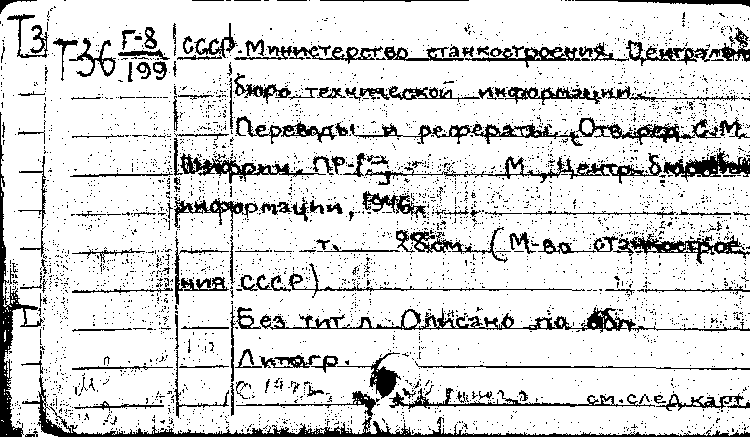 Т3
Т36 Г-8/199
СССР. Министерство станкостроения. Централ
бюро технической информации.
Переводы и рефераты. Отв. ред. С.М.
Шифрин. ПР- М., Центр. бюро
информации, 1946
т. 28см. (М-во станкострое
ния СССР).
Без тит л. Описано по обл.
Литогр.
см. след. карт.